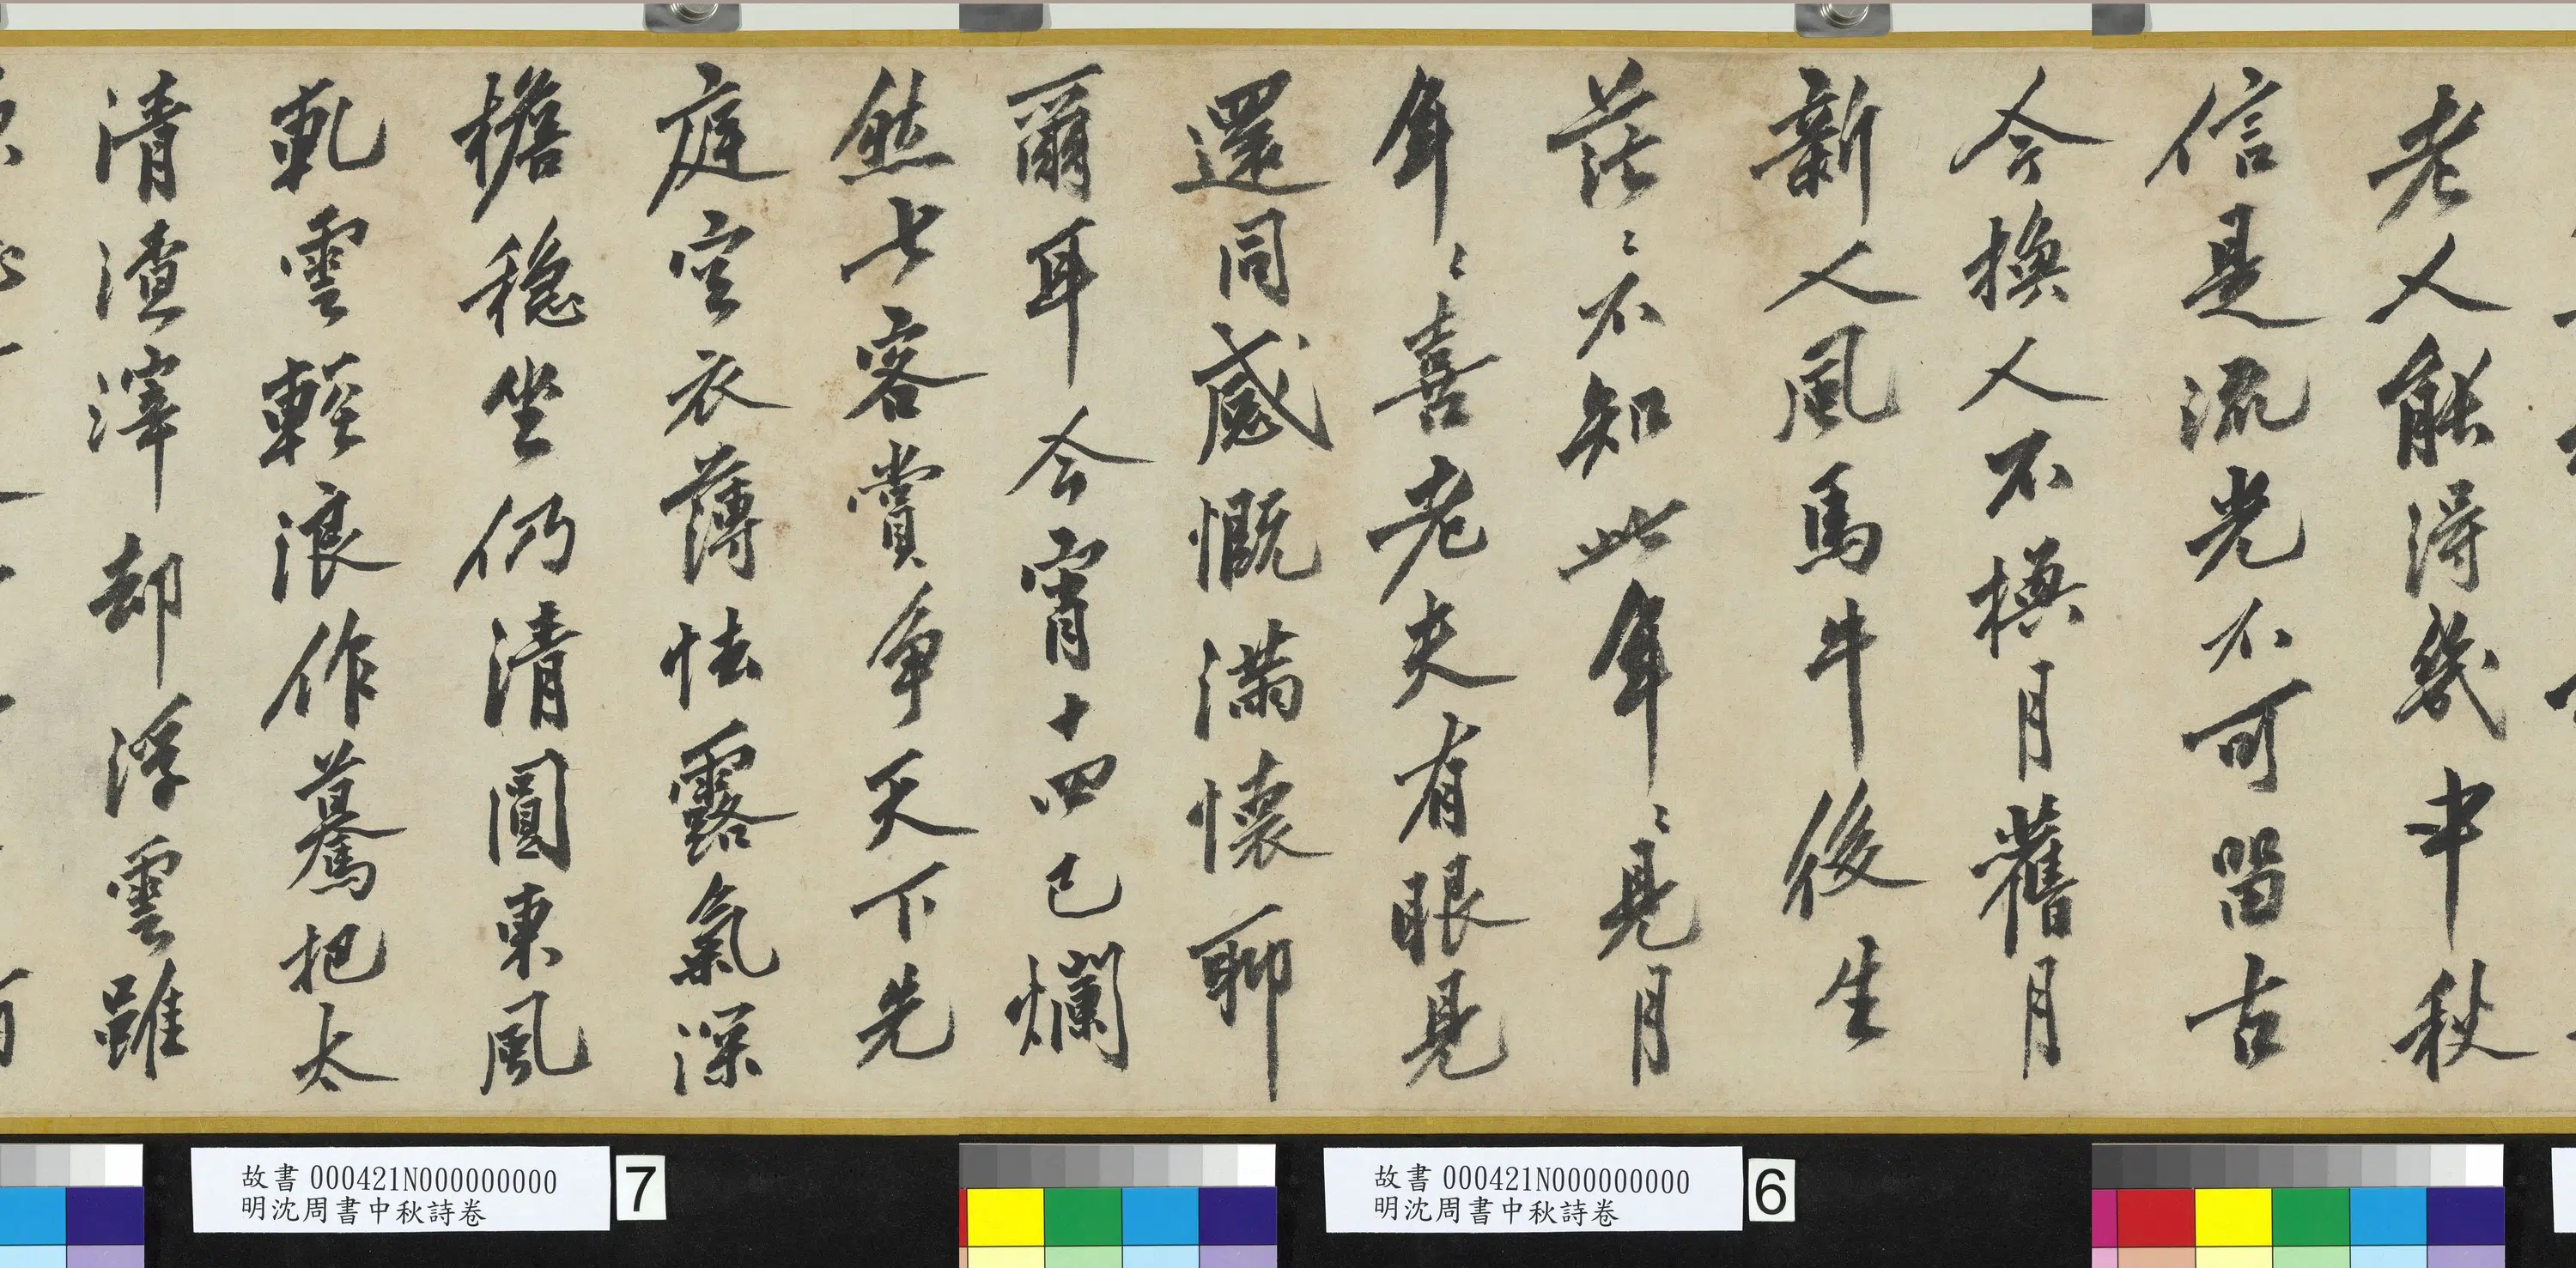 老人能得幾中秋
信是流光不可留古
今換人不換月舊月
新人風馬牛後生
茫〻不知此年〻見月
年〻喜老夫有眼見
還同感慨滿懷聊
爾耳今宵十四已爛
然七客賞争天下先
庭空衣薄怯露氣深
檐穩坐仍清圓東風
軋雲輕浪作驀把太
清渣滓却浮雲雖
故書000421N000000000
明沈周書中秋詩卷
6
故書000421N000000000
明沈周書中秋詩卷
7